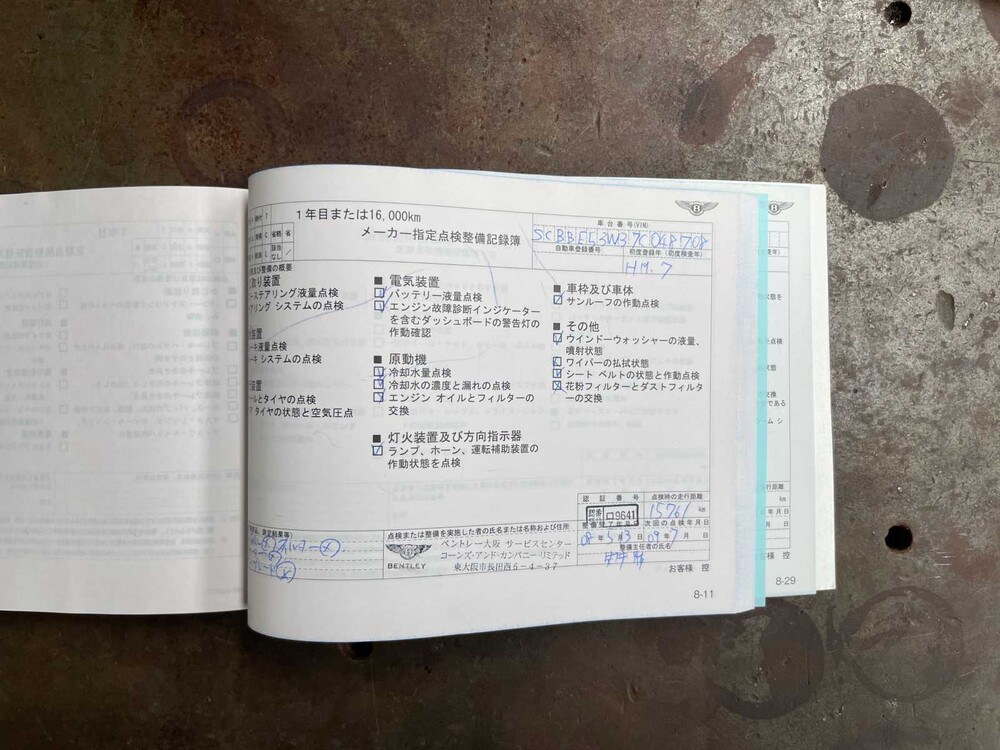 1年目または16,000km
メーカー指定点検整備記録簿
車台番号(VIN)
SCBBE53W37C048708
自動車登録番号
初度登録年(初度検査年)
H19.7
及び整備の概要
取り装置
ーステアリング液量点検
アリング システムの点検
ーキ液量点検
ーキ システムの点検
装置
ールとタイヤの点検
ア タイヤの状態と空気圧点
■ 電気装置
バッテリー液量点検
エンジン故障診断インジケーター
を含むダッシュボードの警告灯の
作動確認
■ 原動機
冷却水量点検
冷却水の濃度と漏れの点検
エンジン オイルとフィルターの
交換
■ 灯火装置及び方向指示器
ランプ、ホーン、運転補助装置の
作動状態を点検
■ 車枠及び車体
サンルーフの作動点検
■ その他
ウインドーウォッシャーの液量、
噴射状態
ワイパーの払拭状態
シート ベルトの状態と作動点検
花粉フィルターとダストフィルタ
ーの交換
点検または整備を実施した者の氏名または名称および住所
ベントレー大阪 サービスセンター
コーンズ・アンド・カンパニー・リミテッド
東大阪市長田西6-4-37
BENTLEY
認証番号
点検時の走行距離
口9641
15761 km
整備完了年月日
次回の点検年月日
整備主任者の氏名
お客様 控
8-11
走行距離
km
年月日
お客様 控
8-29